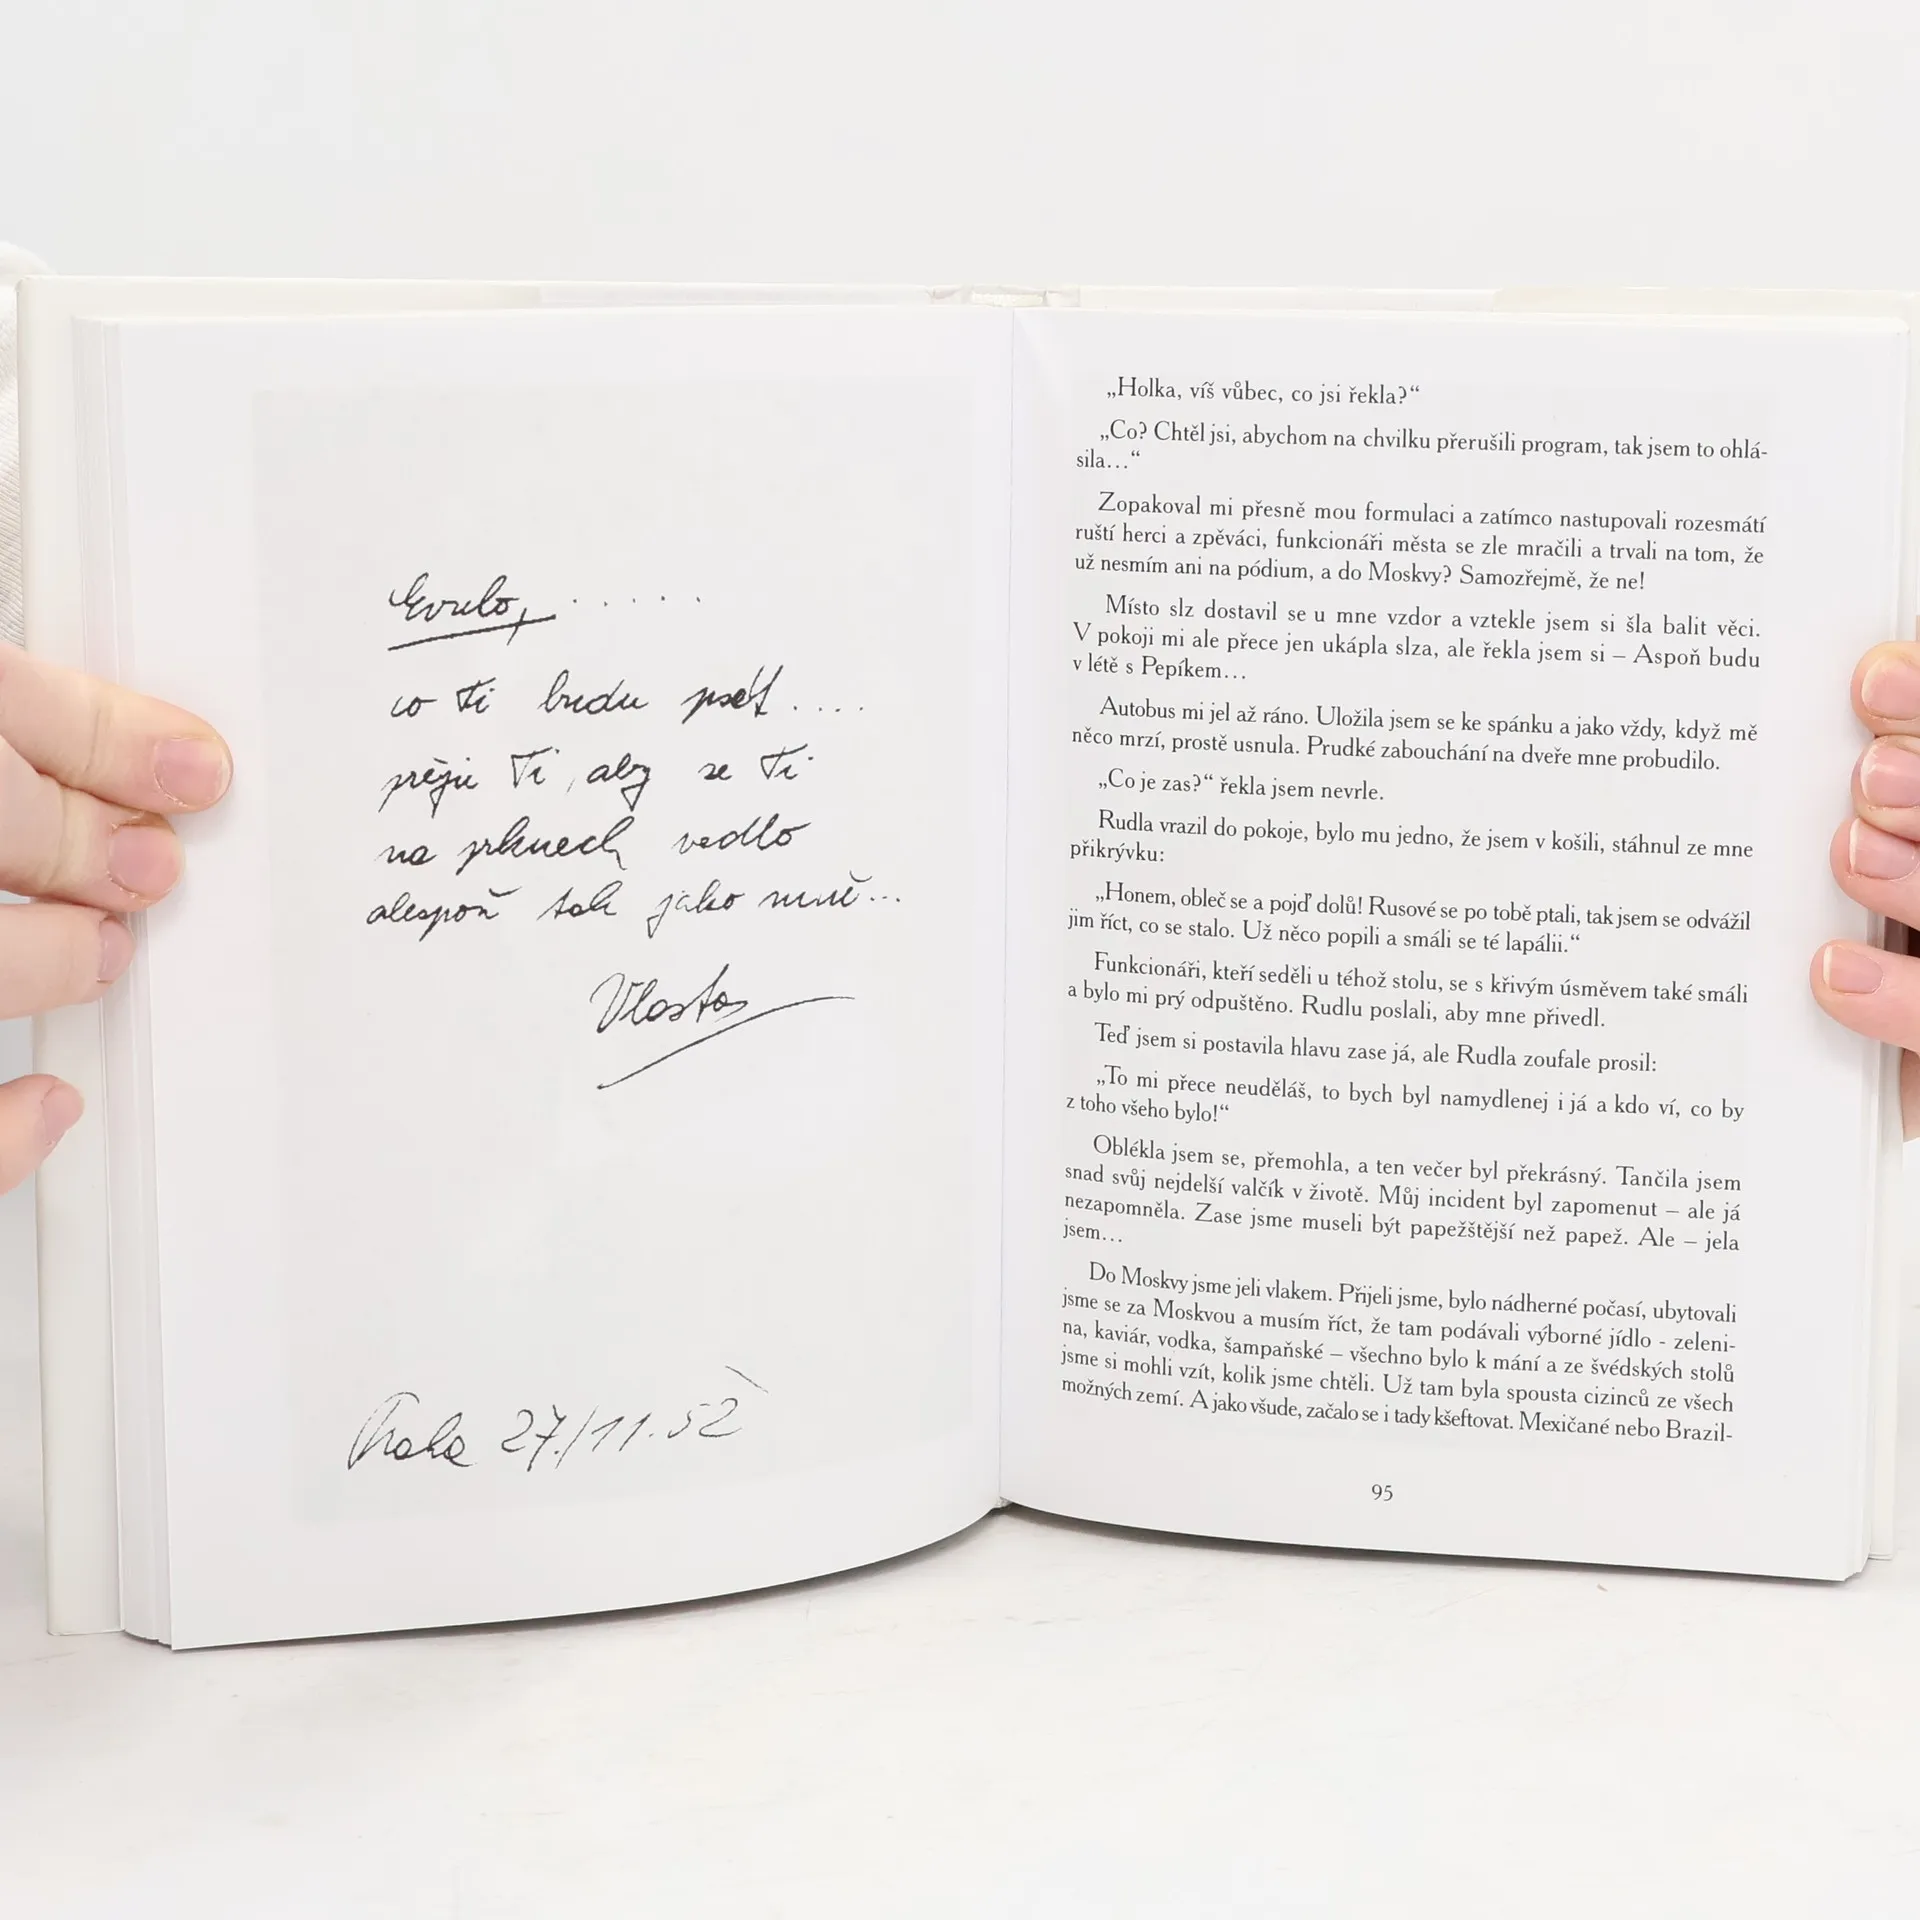 Evulo, . . . . .
co Ti budu psát . . . .
přeju Ti, aby se Ti
na prknech vedlo
alespoň tak jako mně...
Vlasta
Praha 27./11.52
„Holka, víš vůbec, co jsi řekla?“
„Co? Chtěl jsi, abychom na chvilku přerušili program, tak jsem to ohlá-
sila…“
Zopakoval mi přesně mou formulaci a zatímco nastupovali rozesmátí
ruští herci a zpěváci, funkcionáři města se zle mračili a trvali na tom, že
už nesmím ani na pódium, a do Moskvy? Samozřejmě, že ne!
Místo slz dostavil se u mne vzdor a vztekle jsem si šla balit věci.
V pokoji mi ale přece jen ukápla slza, ale řekla jsem si – Aspoň budu
v létě s Pepíkem…
Autobus mi jel až ráno. Uložila jsem se ke spánku a jako vždy, když mě
něco mrzí, prostě usnula. Prudké zabouchání na dveře mne probudilo.
„Co je zas?“ řekla jsem nevrle.
Rudla vrazil do pokoje, bylo mu jedno, že jsem v košili, stáhnul ze mne
přikrývku:
„Honem, obleč se a pojď dolů! Rusové se po tobě ptali, tak jsem se odvážil
jim říct, co se stalo. Už něco popili a smáli se té lapálii.“
Funkcionáři, kteří seděli u téhož stolu, se s křivým úsměvem také smáli
a bylo mi prý odpuštěno. Rudlu poslali, aby mne přivedl.
Teď jsem si postavila hlavu zase já, ale Rudla zoufale prosil:
„To mi přece neuděláš, to bych byl namydlenej i já a kdo ví, co by
z toho všeho bylo!“
Oblékla jsem se, přemohla, a ten večer byl překrásný. Tančila jsem
snad svůj nejdelší valčík v životě. Můj incident byl zapomenut – ale já
nezapomněla. Zase jsme museli být papežštější než papež. Ale – jela
jsem…
Do Moskvy jsme jeli vlakem. Přijeli jsme, bylo nádherné počasí, ubytovali
jsme se za Moskvou a musím říct, že tam podávali výborné jídlo - zeleni-
na, kaviár, vodka, šampaňské – všechno bylo k mání a ze švédských stolů
jsme si mohli vzít, kolik jsme chtěli. Už tam byla spousta cizinců ze všech
možných zemí. A jako všude, začalo se i tady kšeftovat. Mexičané nebo Brazil-
95